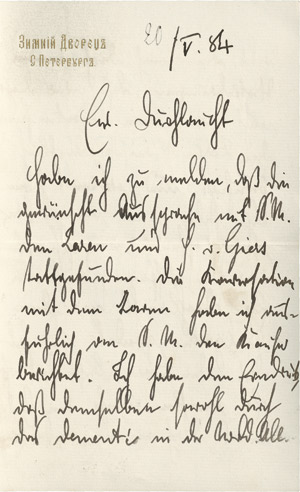 Зимній Дворецъ
С. Петербургъ.
20/V. 84
Ew. Durchlaucht
habe ich zu melden, daß die
gewünscht Aussprache mit S. M.
dem Zaren und H. v. Giers
stattgefunden. Die Konversation
mit dem Zaren habe ich aus-
führlich an S. M. den Kaiser
berichtet. Ich habe den Eindruck
daß demselben sowohl durch
das dementi in der Nordd. All.